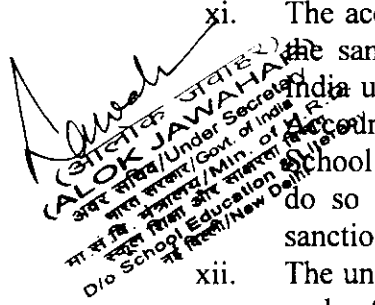 xi. The acc
the san
India u
Accoun
School
do so
sanctio
xii. The un
(आलोक जवाहर)
(ALOK JAWAHAR)
अवर सचिव/Under Secretary
भारत सरकार/Govt. of India
मा.सं.वि. मंत्रालय/Min. of H.R.D.
स्कूल शिक्षा और साक्षरता विभाग
D/o School Education & Literacy
नई दिल्ली/New Delhi